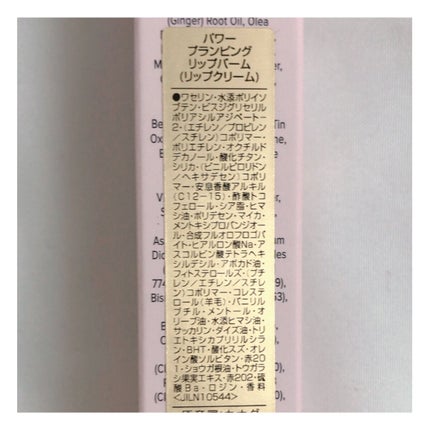 (Ginger) Root Oil, Olea
パワー
プランピング
リップバーム
(リップクリーム)
●ワセリン・水添ポリイソ
ブテン・ビスジグリセリル
ポリアシルアジペート-
2・(エチレン/プロピレン
/スチレン)コポリマー・
ポリエチレン・オクチルド
デカノール・酸化チタン・
シリカ・(ビニルピロリドン
/ヘキサデセン)コポリ
マー・安息香酸アルキル
(C12-15)・酢酸トコ
フェロール・シア脂・ヒマ
シ油・ポリデセン・マイカ・
メントキシプロパンジオー
ル・合成フルオロフロゴパ
イト・ヒアルロン酸Na・ア
スコルビン酸テトラヘキ
シルデシル・アボカド油・
フィトステロールズ・(ブチ
レン/エチレン/スチレ
ン)コポリマー・コレステ
ロール(羊毛)・バニリルブ
チル・メントール・オ
リーブ油・水添ヒマシ油・
サッカリン・ダイズ油・トリ
エトキシカプリリルシラ
ン・BHT・酸化スズ・オレ
イン酸ソルビタン・赤20
1・ショウガ根油・トウガラ
シ果実エキス・赤202・硫
酸Ba・ロジン・香料
<JILN10544>